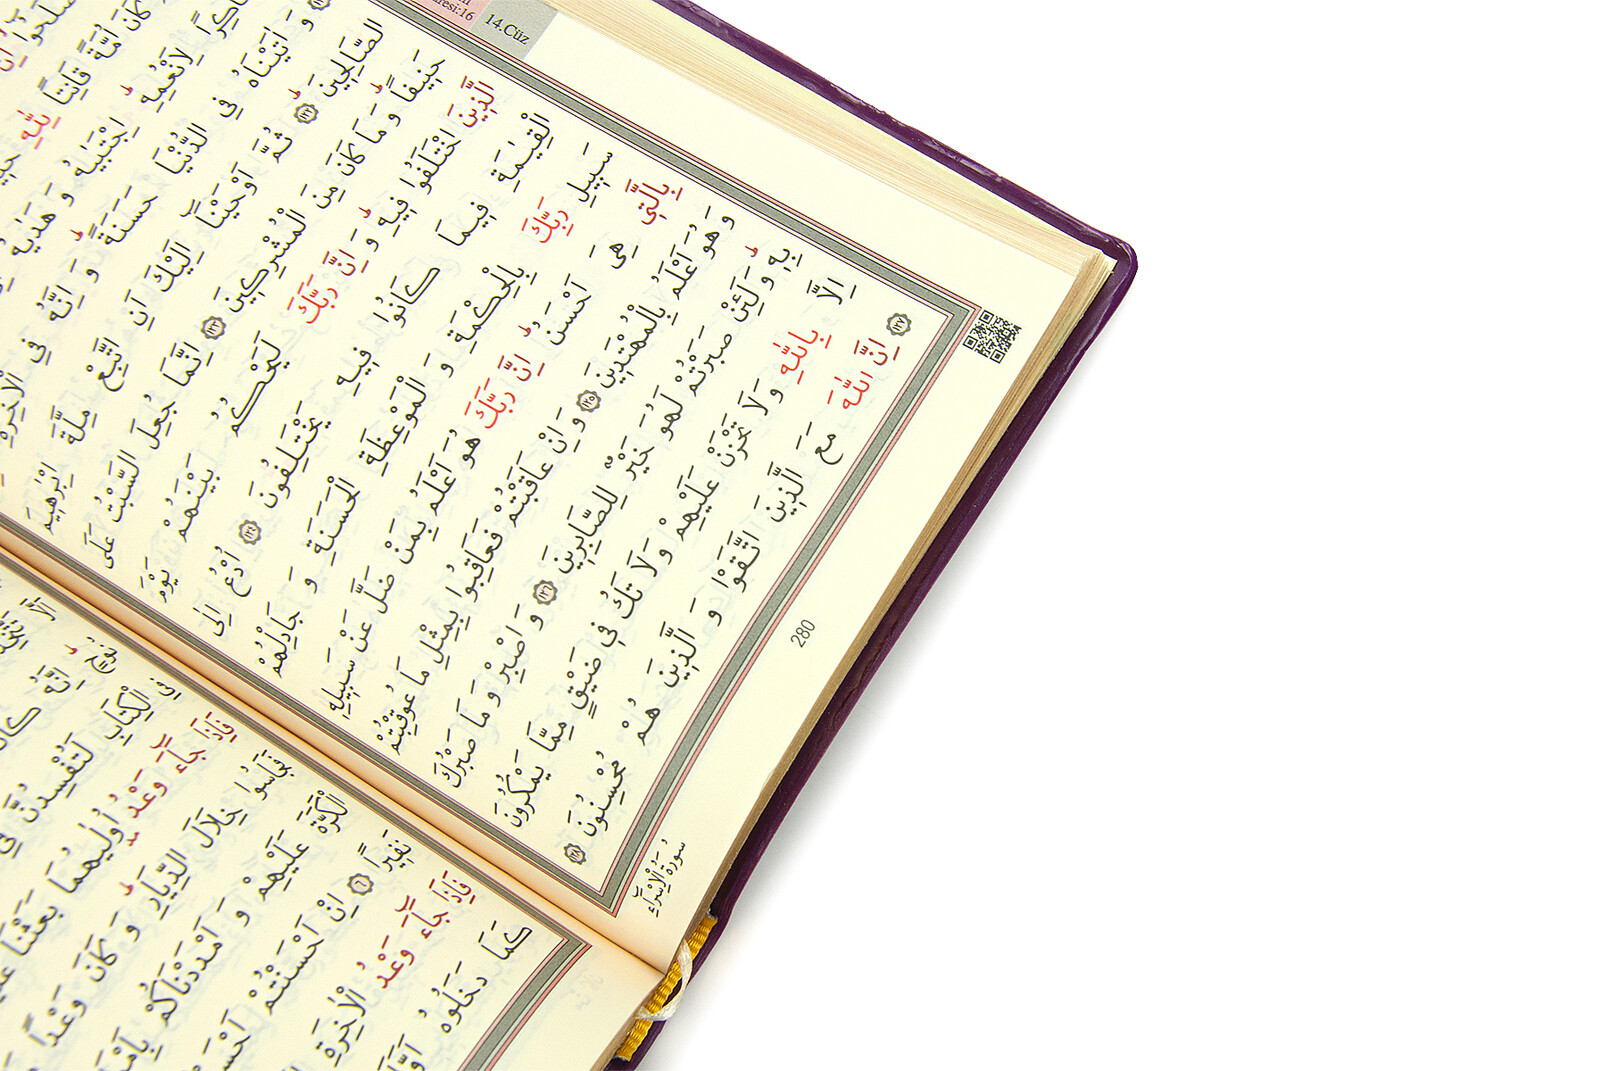 14.Cüz
كَانَ اُمَّةً قَانِتًا لِلّٰهِ
شَاكِرًا لِاَنْعُمِهِ اِجْتَبٰيهُ وَ هَدٰيهُ
وَ اٰتَيْنَاهُ فِي الدُّنْيَا حَسَنَةً وَ اِنَّهُ فِي الْاٰخِرَةِ
الصَّالِحِينَ ﴿١٢٢﴾ ثُمَّ اَوْحَيْنَا اِلَيْكَ اَنِ اتَّبِعْ مِلَّةَ اِبْرٰهِيمَ
حَنِيفًا وَ مَا كَانَ مِنَ الْمُشْرِكِينَ ﴿١٢٣﴾ اِنَّمَا جُعِلَ السَّبْتُ عَلَى
الَّذِينَ اخْتَلَفُوا فِيهِ وَ اِنَّ رَبَّكَ لَيَحْكُمُ بَيْنَهُمْ يَوْمَ
الْقِيٰمَةِ فِيمَا كَانُوا فِيهِ يَخْتَلِفُونَ ﴿١٢٤﴾ اُدْعُ اِلٰى
سَبِيلِ رَبِّكَ بِالْحِكْمَةِ وَ الْمَوْعِظَةِ الْحَسَنَةِ وَ جَادِلْهُمْ
بِالَّتِي هِيَ اَحْسَنُ اِنَّ رَبَّكَ هُوَ اَعْلَمُ بِمَنْ ضَلَّ عَنْ سَبِيلِهِ
وَ هُوَ اَعْلَمُ بِالْمُهْتَدِينَ ﴿١٢٥﴾ وَ اِنْ عَاقَبْتُمْ فَعَاقِبُوا بِمِثْلِ مَا عُوقِبْتُمْ
بِهِ وَ لَئِنْ صَبَرْتُمْ لَهُوَ خَيْرٌ لِلصَّابِرِينَ ﴿١٢٦﴾ وَ اصْبِرْ وَ مَا صَبْرُكَ
اِلَّا بِاللّٰهِ وَ لَا تَحْزَنْ عَلَيْهِمْ وَ لَا تَكُ فِي ضَيْقٍ مِمَّا يَمْكُرُونَ
﴿١٢٧﴾ اِنَّ اللّٰهَ مَعَ الَّذِينَ اتَّقَوْا وَ الَّذِينَ هُمْ مُحْسِنُونَ ﴿١٢٨﴾
280
سُورَةُ الْاِسْرَاءِ
اِنَّهُ كَانَ
الْكِتَابِ لَتُفْسِدُنَّ فِي
فَاِذَا جَاءَ وَعْدُ اُولٰيهُمَا بَعَثْنَا
فَجَاسُوا خِلَالَ الدِّيَارِ وَ كَانَ وَعْدًا
الْكَرَّةَ عَلَيْهِمْ وَ اَمْدَدْنَاكُمْ
نَفِيرًا ﴿٦﴾ اِنْ اَحْسَنْتُمْ
فَاِذَا جَاءَ وَعْدُ الْاٰخِرَةِ
كَمَا دَخَلُوهُ